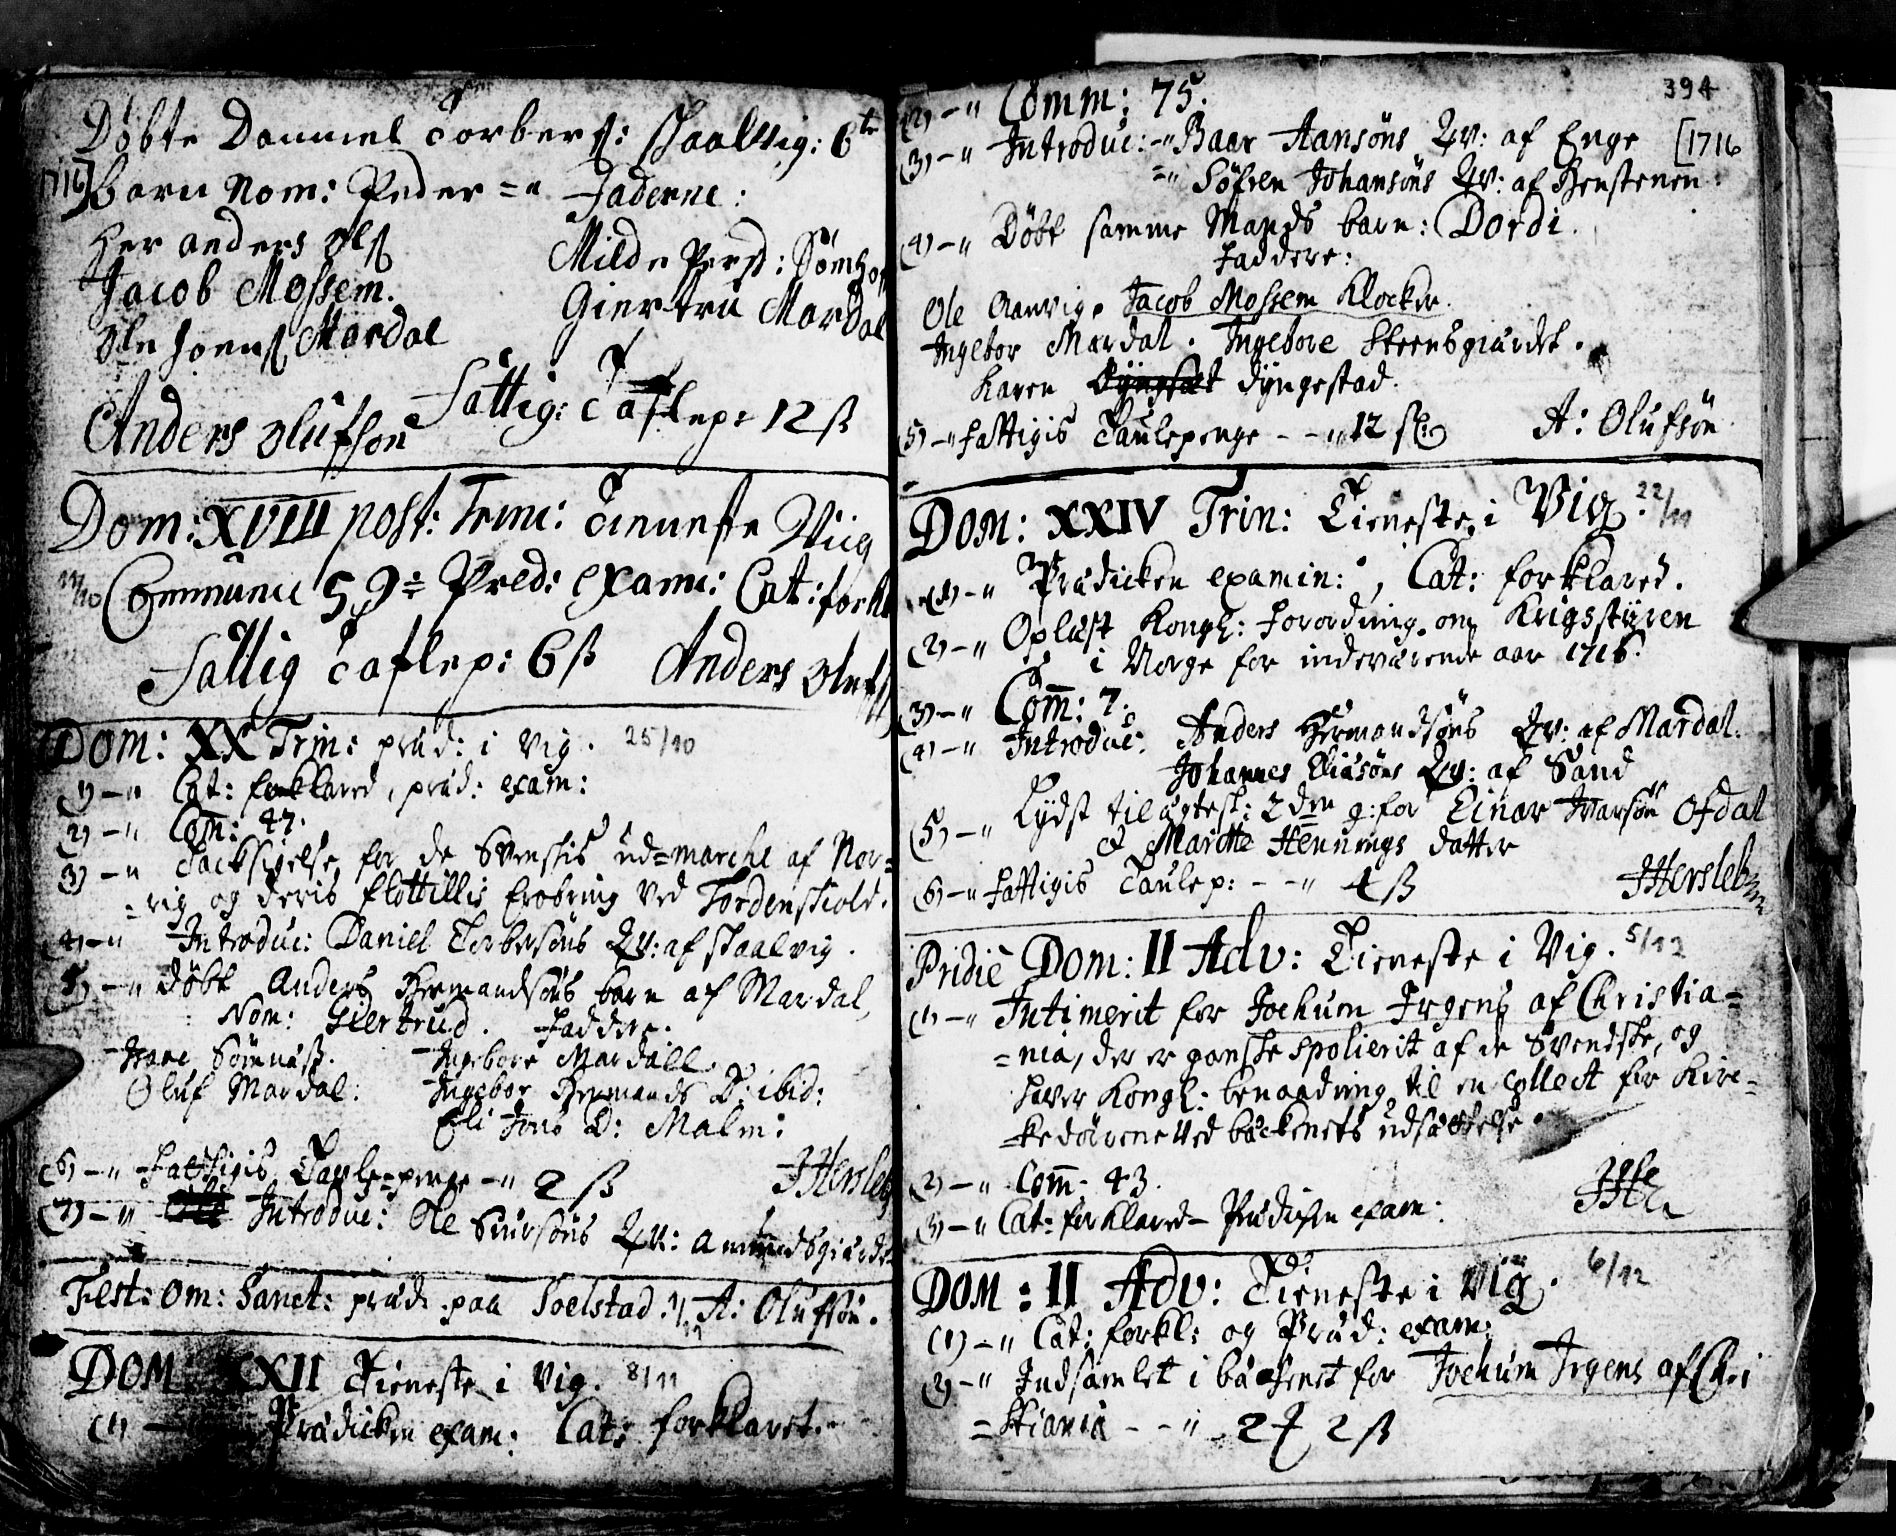 Døbte Danniel Torbers: Skaalvig: 6te
1716] barn Nom: Peder =" Faderne:
Her anders Ols
Jacob Mossem.
Ole Joens Mardal
Milde Persd: Sømhof
Giertru Mardal
Anders Olufson
Fattig: Taflep: 12 ß
Dom: XVIII post: Trini: Tienneste Viig
11/10 Communic 59 = Pred: exami: Cat: forkl
Fattig Taflep: 6 ß Anders Olufs
Dom: XX Trin: præd: i Vig. 25/10
(1) -" Cat: forklared, præd: exam:
(2) -" Com: 47.
(3) -" Tacksigelse for de Svenskis ud=marche af Nor=
=rig og deris flottillis Erobring ved Tordenskiold.
(4) -" Introduc: Daniel Torbersøns Qv: af Skaalvig.
(5) -" Døbt Anders Hermandsøns barn af Mardal,
Nom: Giertrud. Faddere.
Hans Sømnæss. Ingebore Mardall.
Oluf Mardal: Ingebor Hermands D: ibid:
Eli Jons D: Malm:
(6) -" Fattigis Tavle=penge -" 2 ß JHersleb
(7) -" Introduc: Ole Siursøns Qv: Amundsgiarde
Fest: Om: Sanct: præd: paa Soelstad. 1/11 A: Olufsøn.
DOM: XXII Tieneste i Vig. 8/11
(1) - Prædicken exam: Cat: forklaret.
394
(2) -" Comm: 75.
(3) -" Introduc: -" Baar Hansøns Qv: af Enge [1716
=" Søfren Johansøns Qv: af Henstenen.
(4) -" Døbt samme Mands barn: Dordi.
Faddere:
Ole Aanvig. Jacob Mossem Klocker.
Ingebor Mardal. Ingebore Steensgiardet.
Karen Dyngestad.
(5) -" Fattigis Taulepenge - -" 12 ß A: Olufsøn
DOM: XXIV Trin: Tieneste i Vig. 22/11
(1) -" Prædicken examin:, Cat: forklared.
(2) -" Oplæst Kongl: Forordning om Krigsstyren
i Norge for indeværende aar 1716.
(3) -" Com: 7.
(4) -" Introduc: Anders Hermandsøns Qv: af Mardal.
Johannes Eliasøns Qv: af Sand
(5) -" Lydst til ægtesk: 2den g: for Einar Ivarsøn Ofdal
& Marthe Hennings datter
(6) -" Fattigis Taulep: - -" 4 ß JHersleb
Pridie Dom: II Adv: Tieneste i Vig. 5/12
(1) -" Intimerit for Jochum Irgens af Christia=
=nia, der er ganske spolierit af de Svendske, og
hafver Kongl: benaadning til en collect for Kirc=
=kedørene ved bæckenets udsættelse.
(2) -" Com: 43.
(3) -" Cat: forklared - Prædicken exam:
DOM: II Adv: Tieneste i Vig. 6/12
(1) -" Cat: forkl: og Præd: exam:
(2) -" Indsamlet i bæckenet for Jochum Irgens af Chri
=stiania - -" 2 2 ß